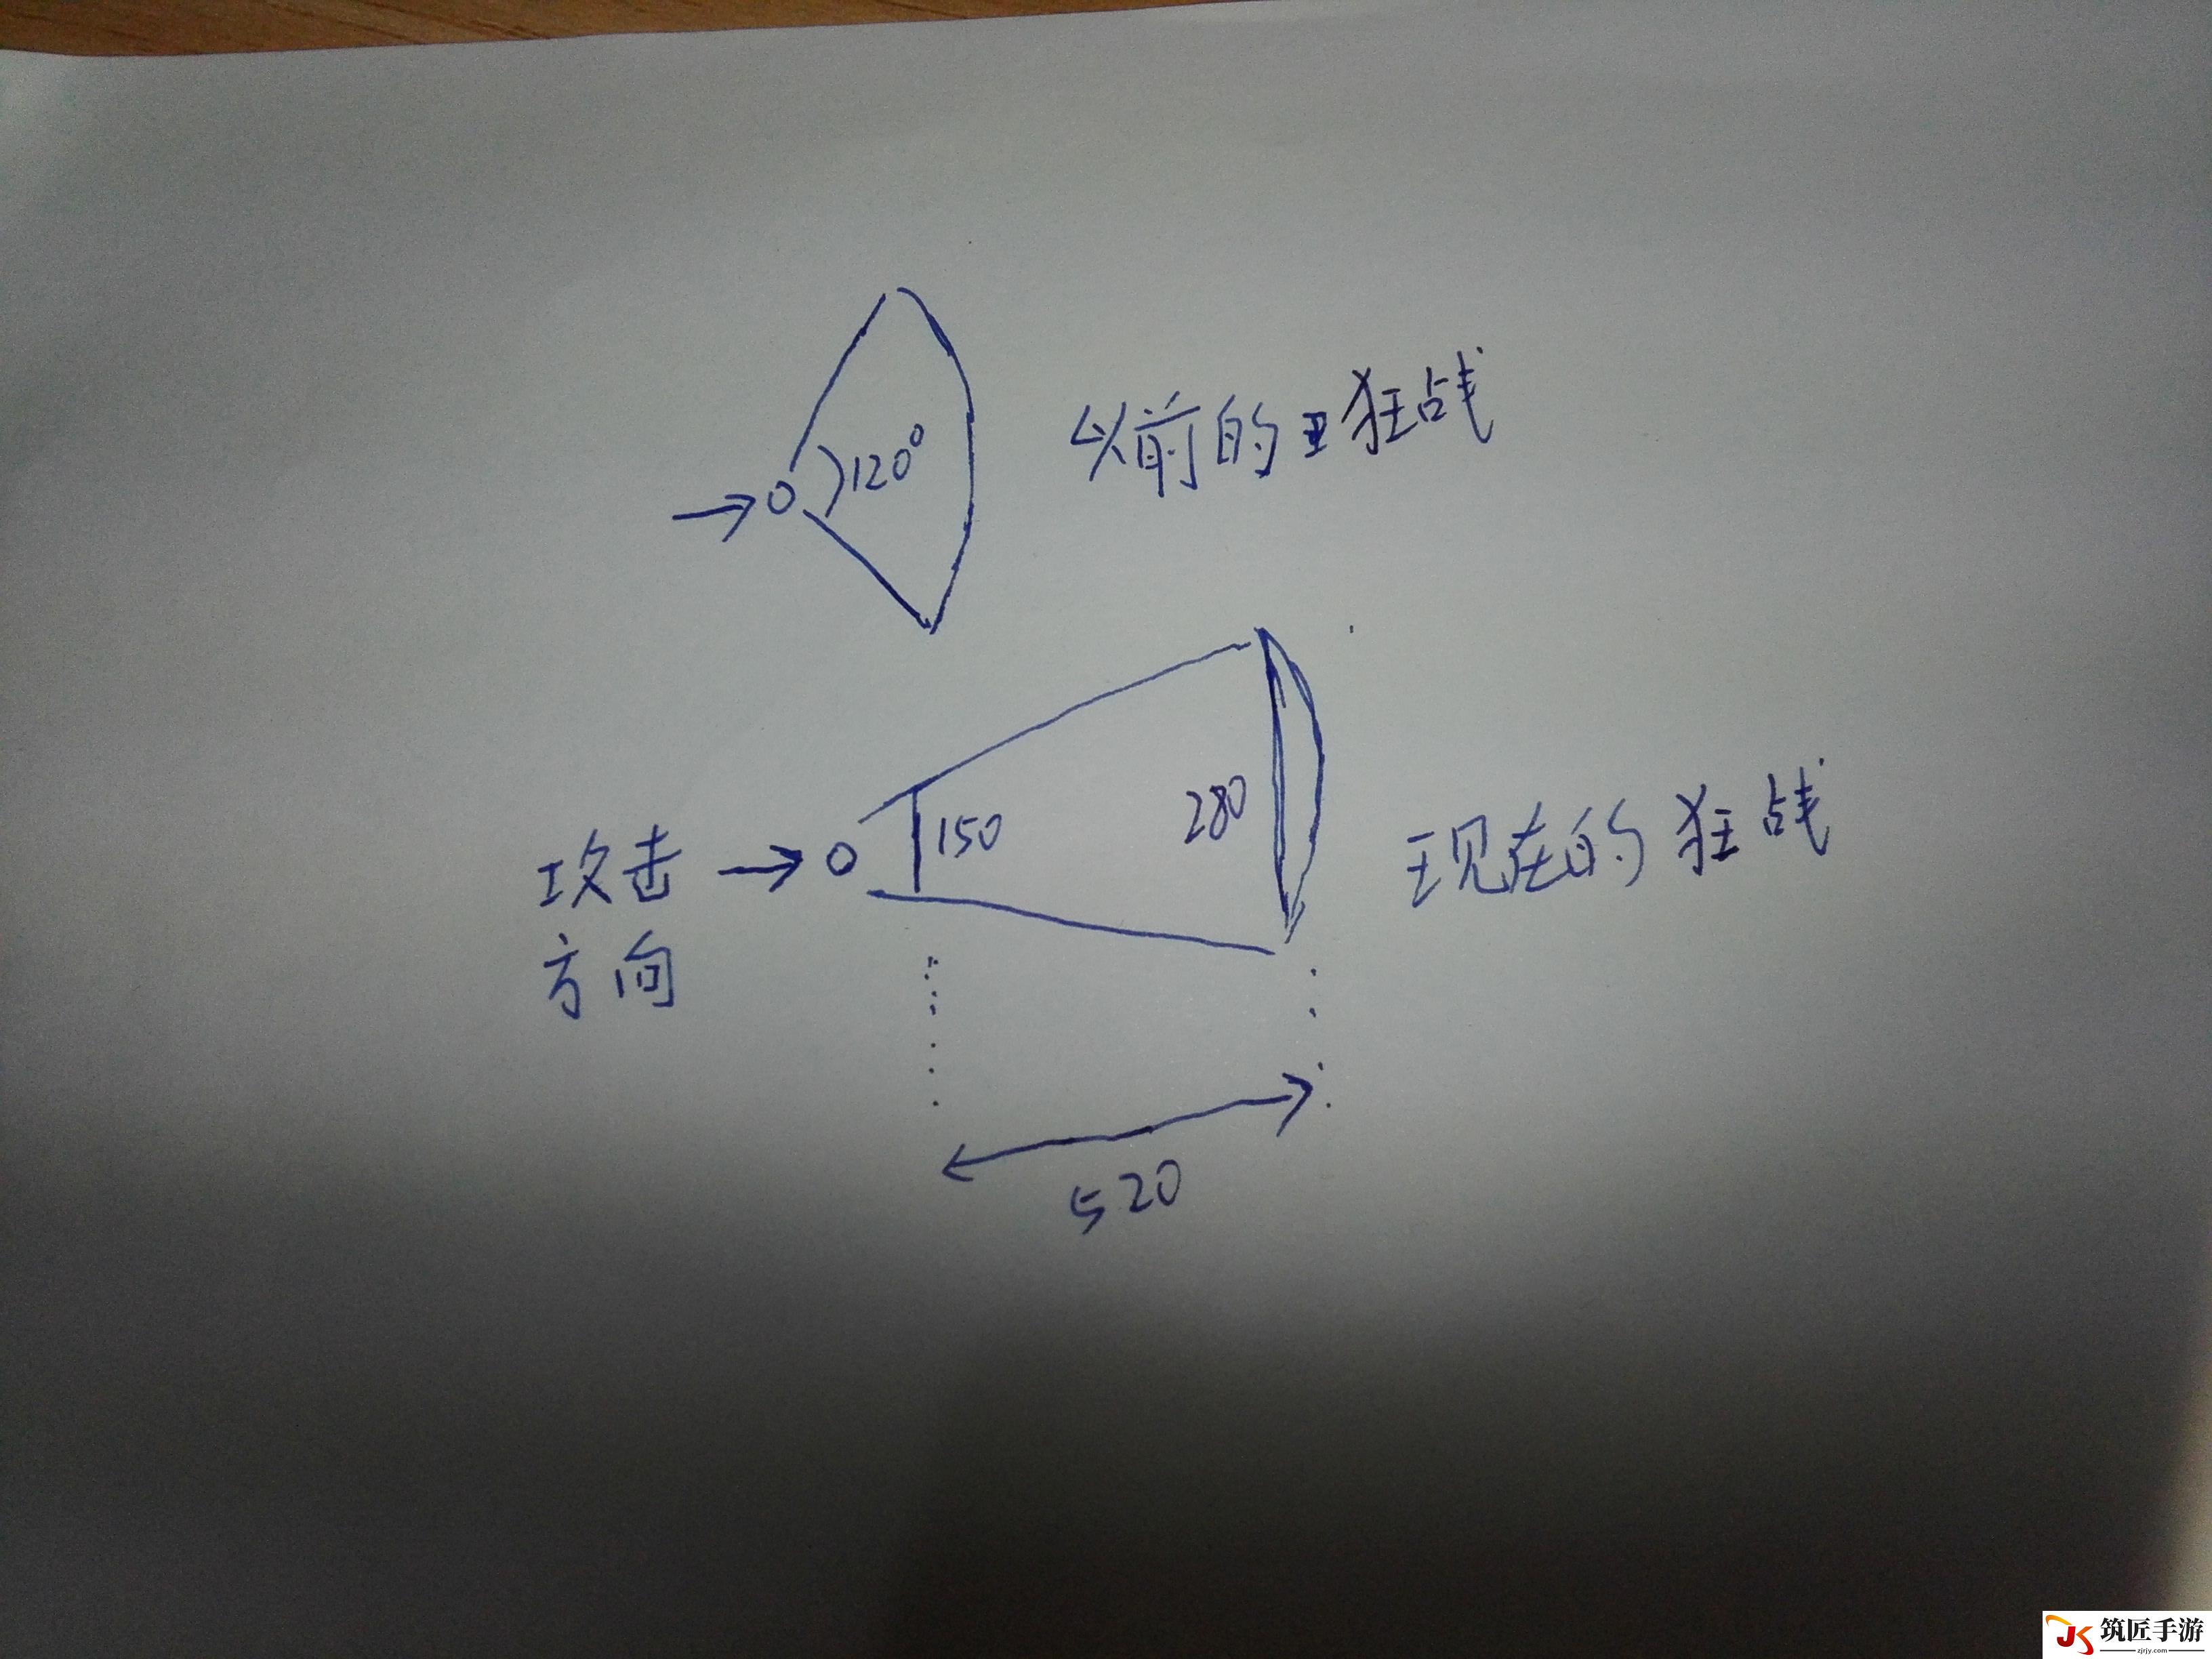 120°
以前的狂战
150
280
现在的狂战
攻击
方向
520
JK
筑匠手游
zjrjy.com